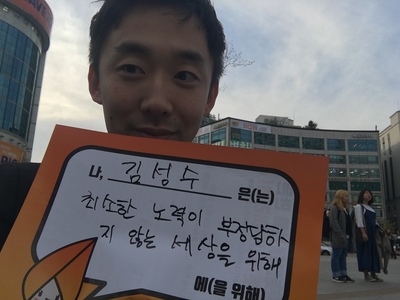 나, 김성수 은(는)
최소한 노력이 부정당하
지 않는 세상을 위해
에(을 위해)